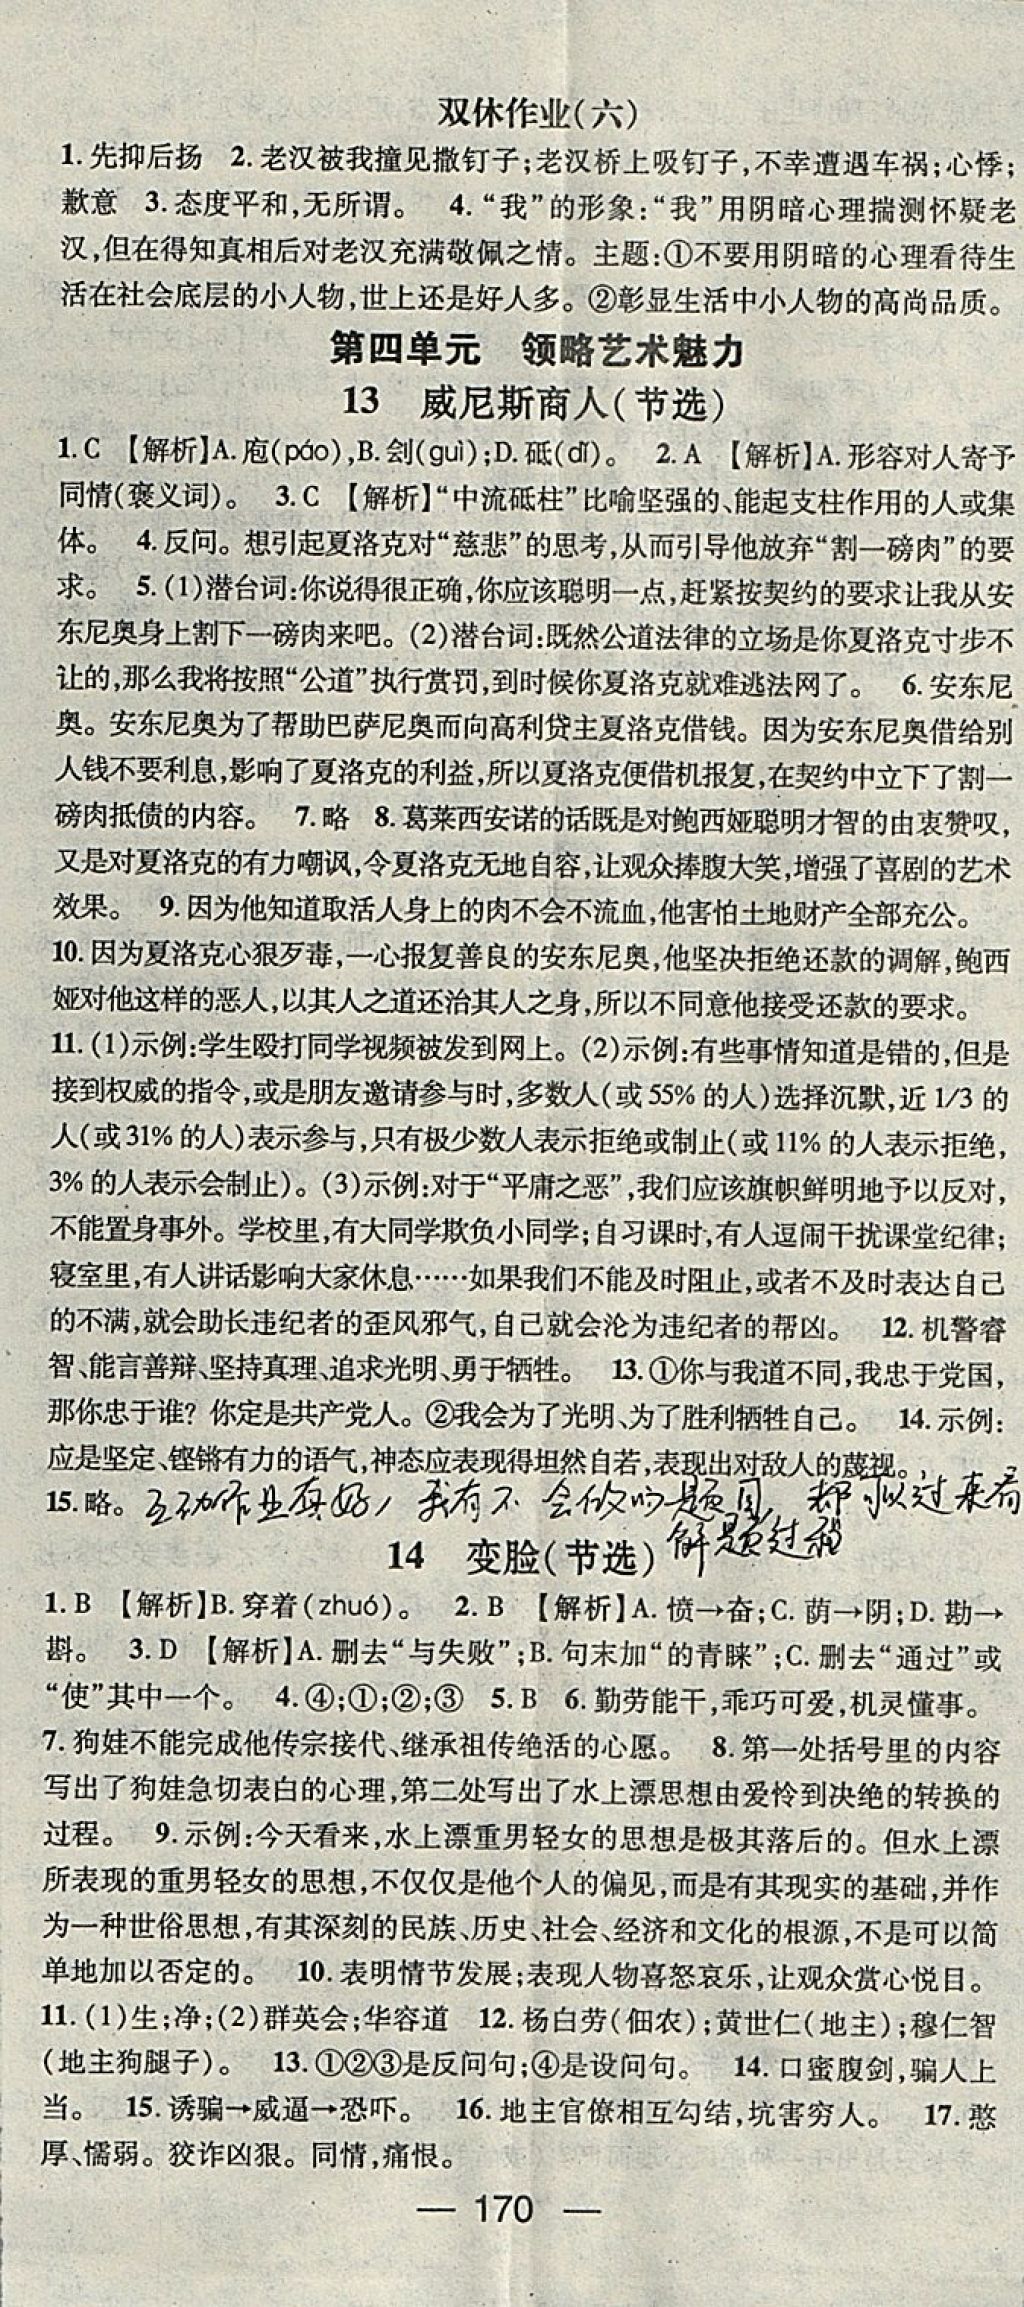 双休作业(六)
1.先抑后扬 2.老汉被我撞见撒钉子;老汉桥上吸钉子,不幸遭遇车祸;心悸;
歉意 3.态度平和,无所谓。 4.“我”的形象:“我”用阴暗心理揣测怀疑老
汉,但在得知真相后对老汉充满敬佩之情。主题:①不要用阴暗的心理看待生
活在社会底层的小人物,世上还是好人多。②彰显生活中小人物的高尚品质。
第四单元 领略艺术魅力
13 威尼斯商人(节选)
1.C 【解析】A.庖(páo),B.刽(guì);D.砥(dǐ)。 2.A 【解析】A.形容对人寄予
同情(褒义词)。 3.C 【解析】“中流砥柱”比喻坚强的、能起支柱作用的人或集
体。 4.反问。想引起夏洛克对“慈悲”的思考,从而引导他放弃“割一磅肉”的要
求。 5.(1)潜台词:你说得很正确,你应该聪明一点,赶紧按契约的要求让我从安
东尼奥身上割下一磅肉来吧。(2)潜台词:既然公道法律的立场是你夏洛克寸步不
让的,那么我将按照“公道”执行赏罚,到时候你夏洛克就难逃法网了。 6.安东尼
奥。安东尼奥为了帮助巴萨尼奥而向高利贷主夏洛克借钱。因为安东尼奥借给别
人钱不要利息,影响了夏洛克的利益,所以夏洛克便借机报复,在契约中立下了割一
磅肉抵债的内容。 7.略 8.葛莱西安诺的话既是对鲍西娅聪明才智的由衷赞叹,
又是对夏洛克的有力嘲讽,令夏洛克无地自容,让观众捧腹大笑,增强了喜剧的艺术
效果。 9.因为他知道取活人身上的肉不会不流血,他害怕土地财产全部充公。
10.因为夏洛克心狠歹毒,一心报复善良的安东尼奥,他坚决拒绝还款的调解,鲍西
娅对他这样的恶人,以其人之道还治其人之身,所以不同意他接受还款的要求。
11.(1)示例:学生殴打同学视频被发到网上。(2)示例:有些事情知道是错的,但是
接到权威的指令,或是朋友邀请参与时,多数人(或55%的人)选择沉默,近1/3的
人(或31%的人)表示参与,只有极少数人表示拒绝或制止(或11%的人表示拒绝,
3%的人表示会制止)。(3)示例:对于“平庸之恶”,我们应该旗帜鲜明地予以反对,
不能置身事外。学校里,有大同学欺负小同学;自习课时,有人逗闹干扰课堂纪律;
寝室里,有人讲话影响大家休息……如果我们不能及时阻止,或者不及时表达自己
的不满,就会助长违纪者的歪风邪气,自己就会沦为违纪者的帮凶。 12.机警睿
智、能言善辩、坚持真理、追求光明、勇于牺牲。 13.①你与我道不同,我忠于党国,
那你忠于谁?你定是共产党人。②我会为了光明、为了胜利牺牲自己。 14.示例:
应是坚定、铿锵有力的语气,神态应表现得坦然自若,表现出对敌人的蔑视。
15.略。互动作业真好,我有不会做的题目,都求过来看
解题过程
14 变脸(节选)
1.B 【解析】B.穿着(zhuó)。 2.B 【解析】A.愤→奋;C.荫→阴;D.勘→
斟。 3.D 【解析】A.删去“与失败”;B.句末加“的青睐”;C.删去“通过”或
“使”其中一个。 4.④;①;②;③ 5.B 6.勤劳能干,乖巧可爱,机灵懂事。
7.狗娃不能完成他传宗接代、继承祖传绝活的心愿。 8.第一处括号里的内容
写出了狗娃急切表白的心理,第二处写出了水上漂思想由爱怜到决绝的转换的
过程。 9.示例:今天看来,水上漂重男轻女的思想是极其落后的。但水上漂
所表现的重男轻女的思想,不仅仅是他个人的偏见,而是有其现实的基础,并作
为一种世俗思想,有其深刻的民族、历史、社会、经济和文化的根源,不是可以简
单地加以否定的。 10.表明情节发展;表现人物喜怒哀乐,让观众赏心悦目。
11.(1)生;净;(2)群英会;华容道 12.杨白劳(佃农);黄世仁(地主);穆仁智
(地主狗腿子)。 13.①②③是反问句;④是设问句。 14.口蜜腹剑,骗人上
当。 15.诱骗→威逼→恐吓。 16.地主官僚相互勾结,坑害穷人。 17.憨
厚、懦弱。狡诈凶狠。同情,痛恨。
— 170 —